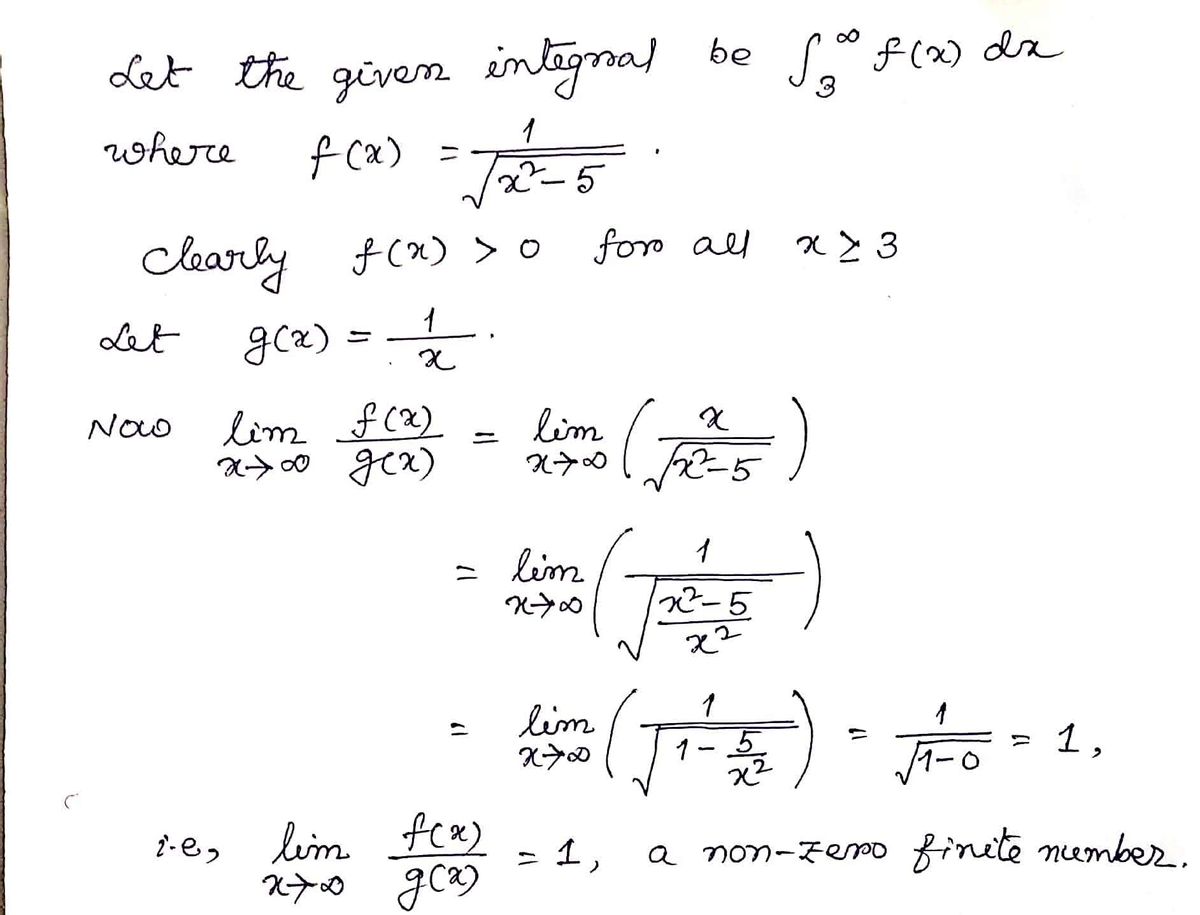 Let the given integral be ∫₃^∞ f(x) dx
where f(x) = 1/√(x²-5) .
Clearly f(x) > 0 for all x ≥ 3
Let g(x) = 1/x .
Now lim x→∞ f(x)/g(x) = lim x→∞ ( x/√(x²-5) )
= lim x→∞ ( 1/√((x²-5)/x²) )
= lim x→∞ ( 1/√(1-5/x²) ) = 1/√(1-0) = 1,
i.e, lim x→∞ f(x)/g(x) = 1, a non-zero finite number.